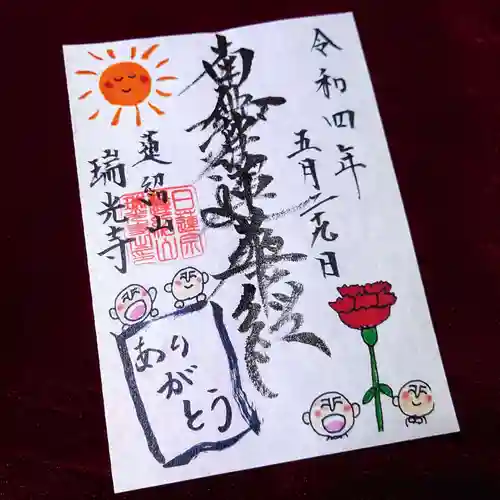 令和四年
五月二十九日
南無妙法蓮華経
蓮紹山
瑞光寺
日蓮宗
ありがとう